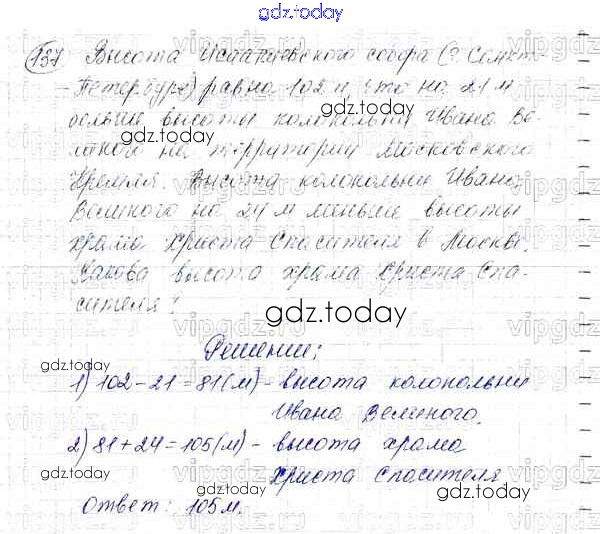 gdz.today
137 Высота Исаакиевского собора (г. Санкт-
-Петербург) равна 102 м, что на 21 м
больше высоты колокольни Ивана Ве-
gdz.today
ликого на территории Московского
gdz.today
Кремля. Высота колокольни Ивана
Великого на 24 м меньше высоты
храма Христа Спасителя в Москве.
Какова высота храма Христа Спа-
сителя?
gdz.today
Решение:
gdz.today
1) 102 - 21 = 81 (м) - высота колокольни
Ивана Великого.
2) 81 + 24 = 105 (м) - высота храма
Христа Спасителя
gdz.today
gdz.today
Ответ: 105 м.